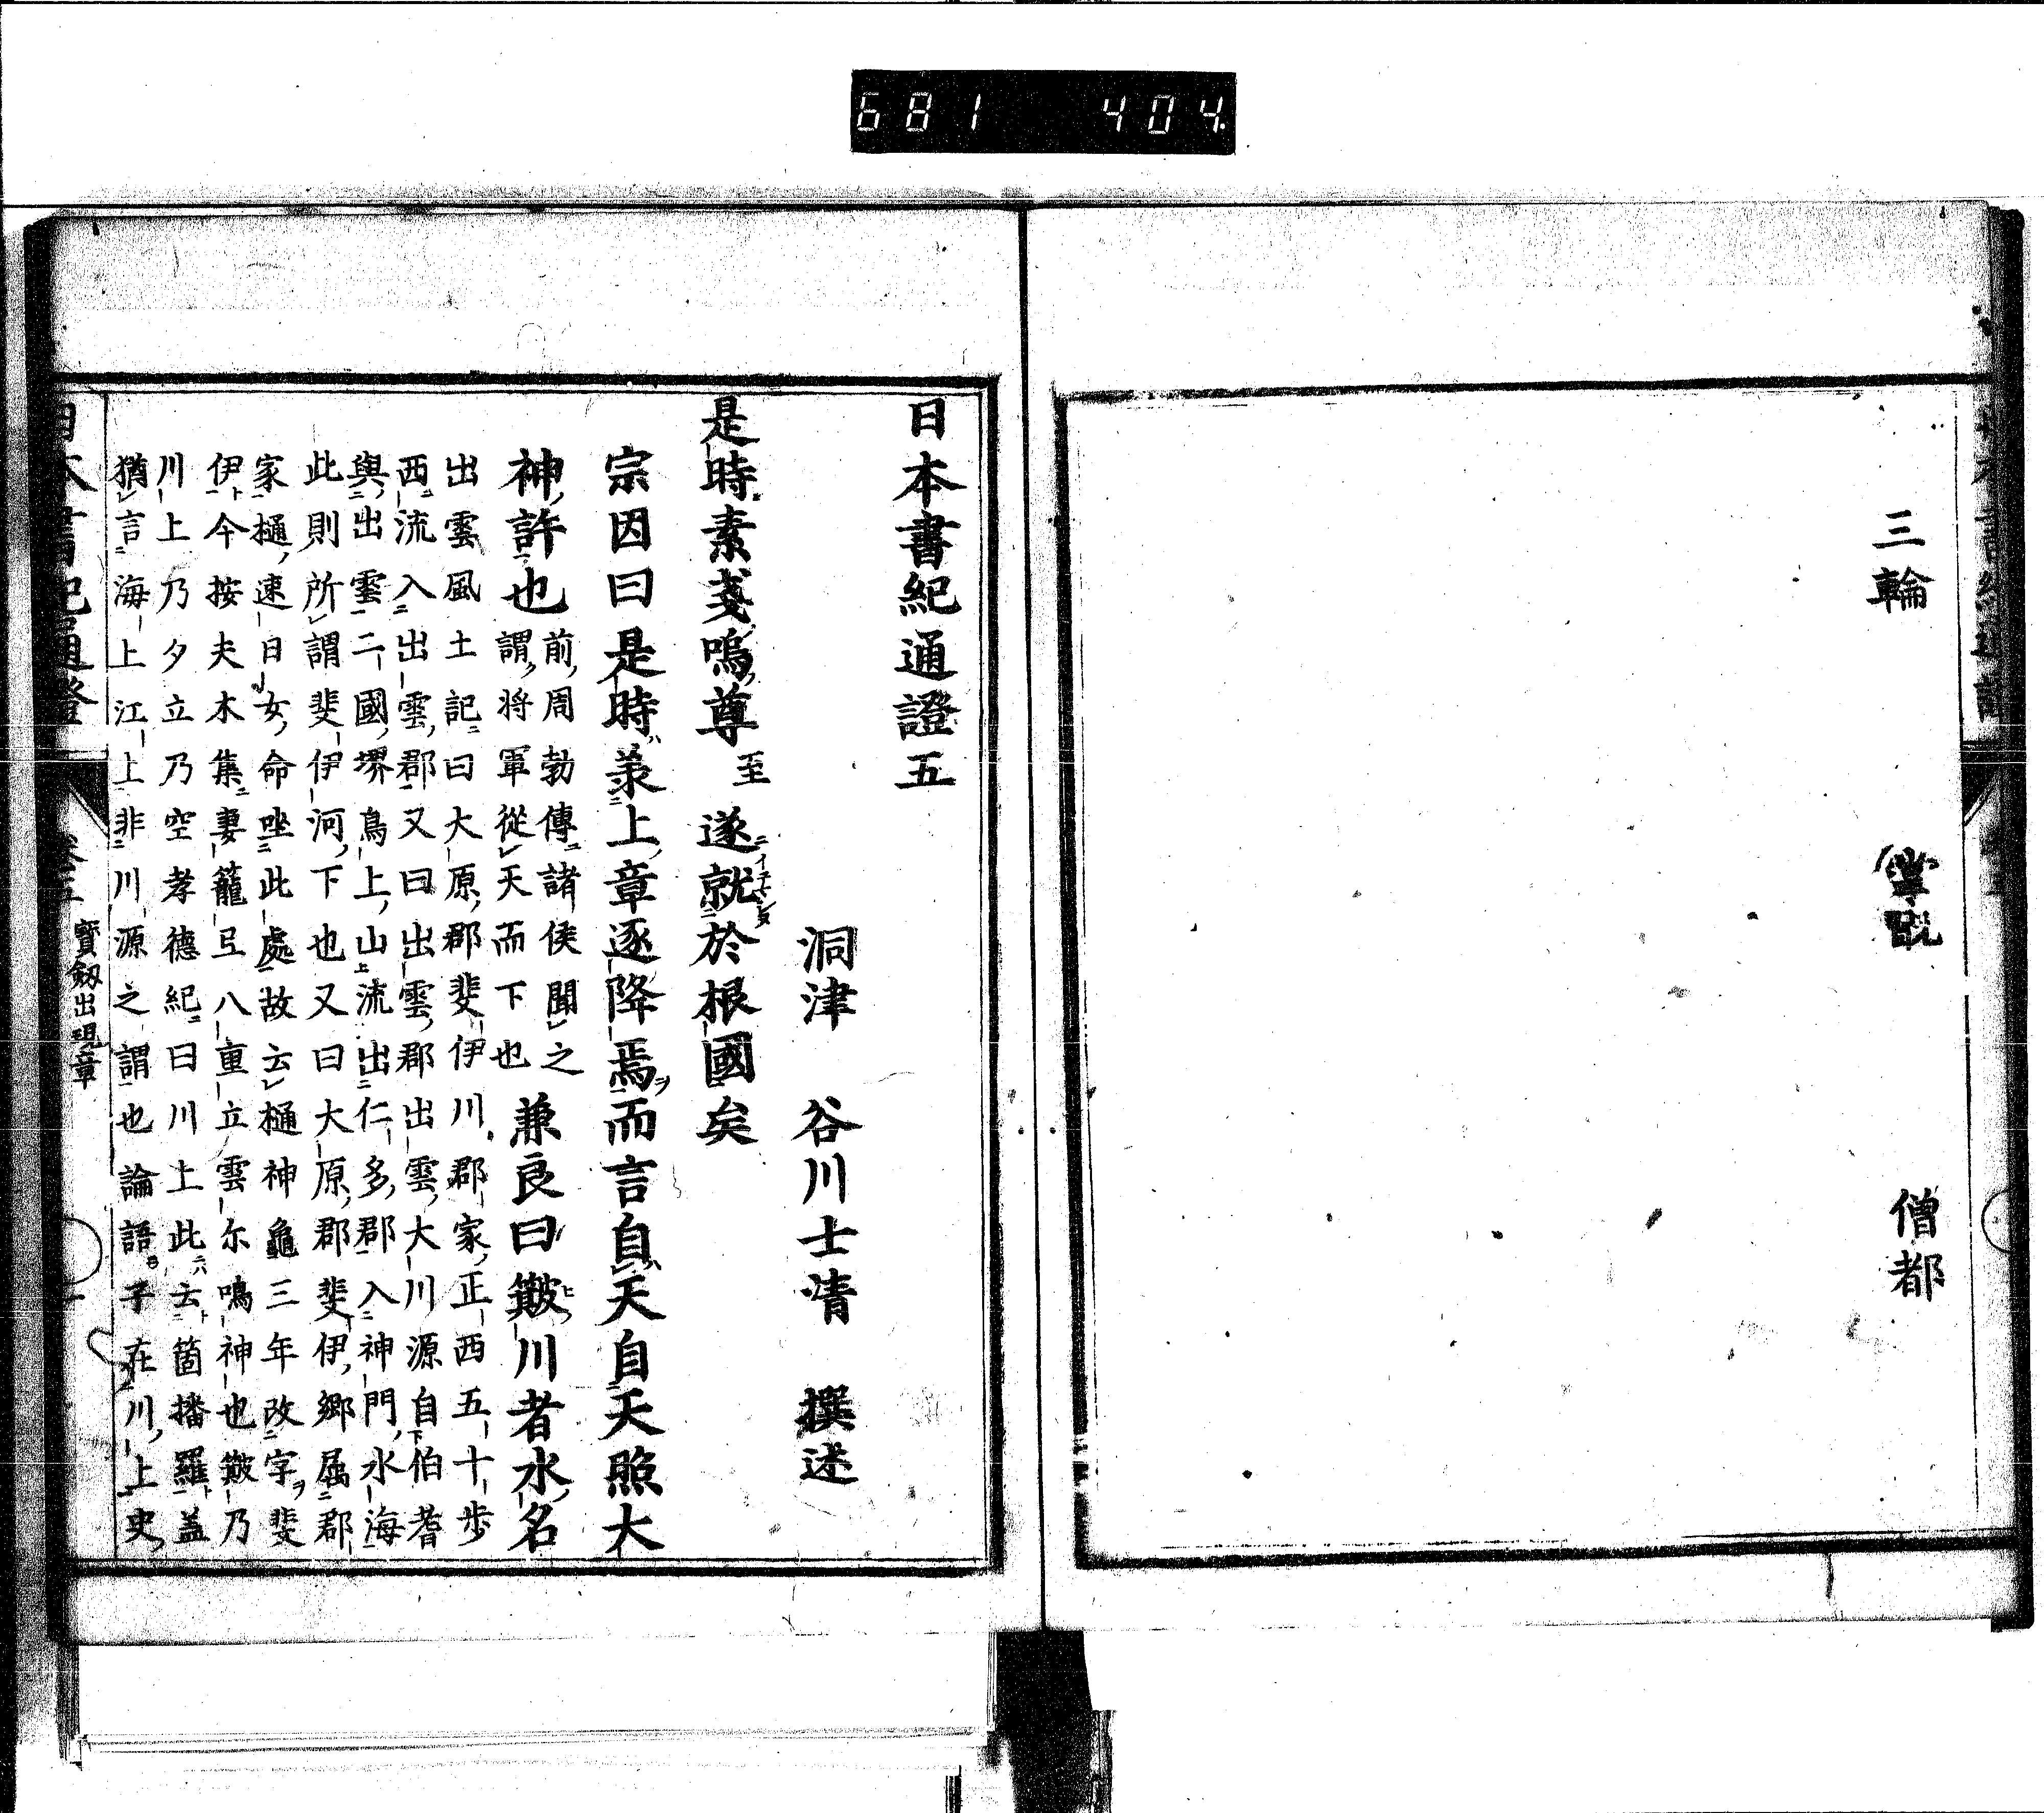 681 404
三輪 掌說 僧都
日本書紀通證五
洞津 谷川士清 撰述
是時素戔嗚尊 至 遂就於根國矣
宗因曰是時羕上章逐降焉而言自天自天照大
神許也 前周勃傳諸侯聞之
謂將軍從天而下也 兼良曰簸川者水名
出雲風土記曰大原郡斐伊川郡家正西五十歩
西流入出雲郡又曰出雲郡出雲大川源自伯耆
與出雲二國堺鳥上山流出仁多郡入神門水海
此則所謂斐伊河下也又曰大原郡斐伊郷屬郡
家樋速日女命坐此處故云樋神龜三年改字斐
伊今按夫木集妻籠弖八重立雲尓鳴神也簸乃
川上乃夕立乃空孝德紀曰川上此云箇播羅蓋
猶言海上江上非川源之謂也論語子在川上史
日本書紀通證 卷五 寶劔出現章 一